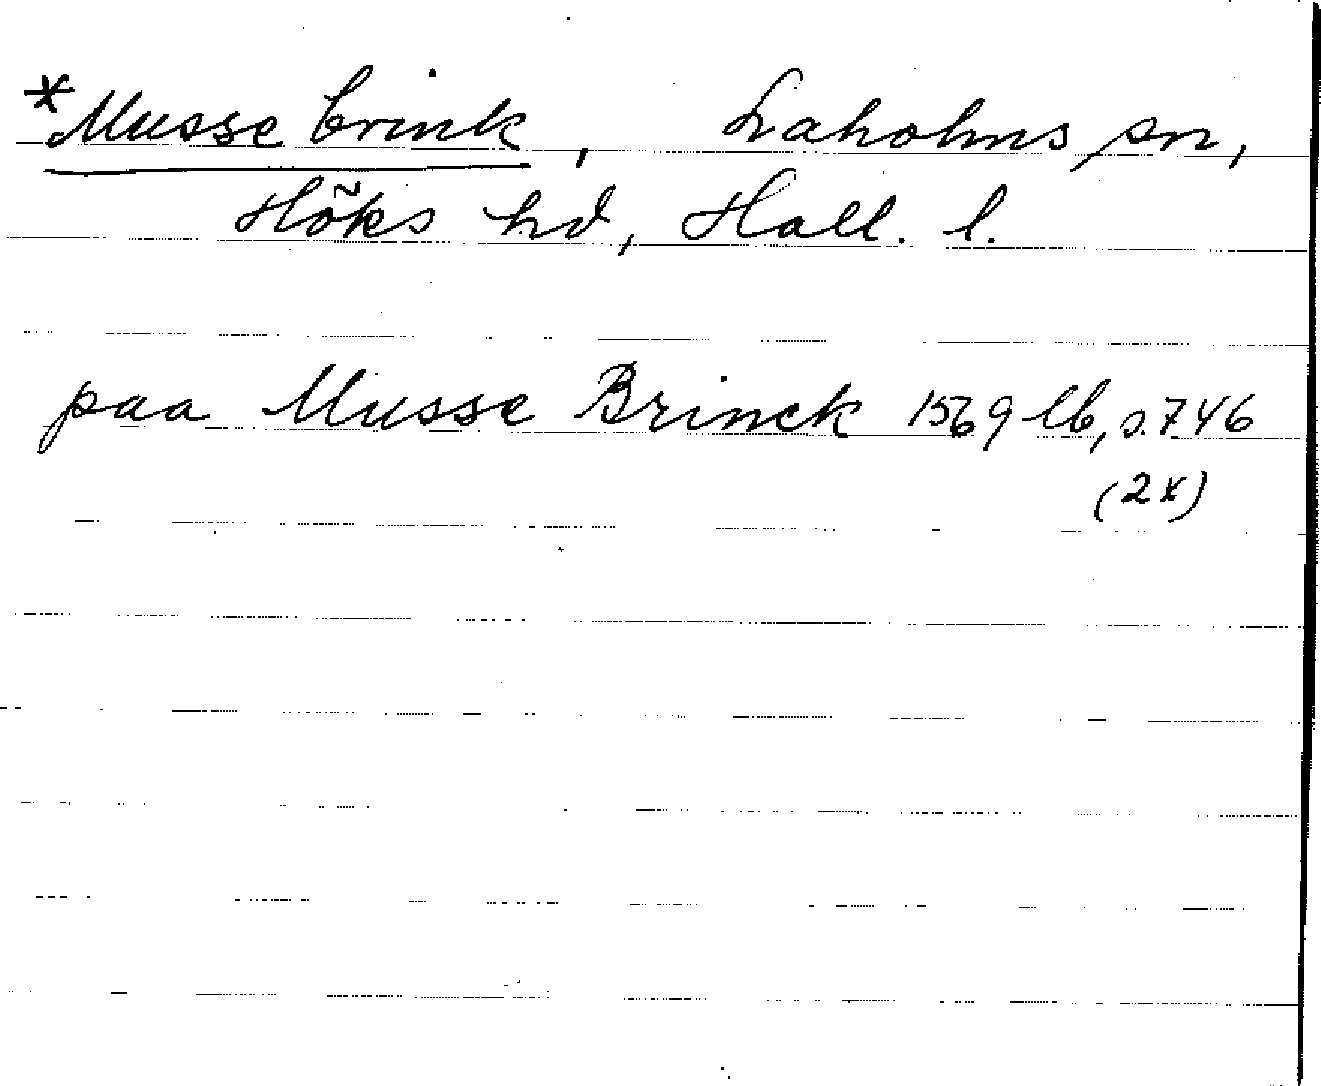 *Mussebrink, Laholms sn,
Höks hd, Hall. l.
paa Musse Brinck 1569 lb, s. 746
(2x)